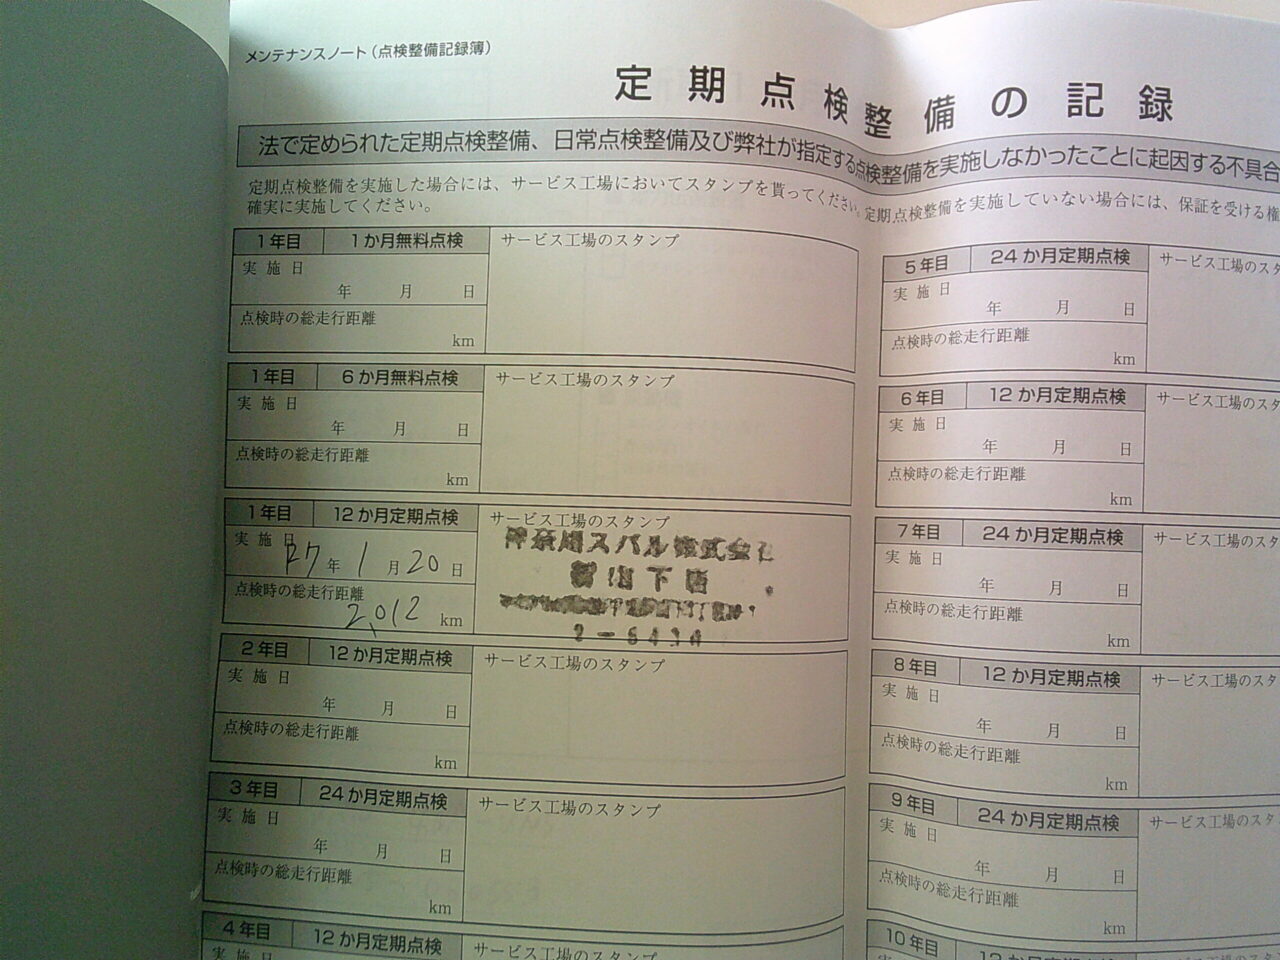 メンテナンスノート（点検整備記録簿）
定期点検整備の記録
法で定められた定期点検整備、日常点検整備及び弊社が指定する点検整備を実施しなかったことに起因する不具合
定期点検整備を実施した場合には、サービス工場においてスタンプを貰ってください。定期点検整備を実施していない場合には、保証を受ける権
確実に実施してください。
1年目 1か月無料点検 サービス工場のスタンプ
実施日
年 月 日
点検時の総走行距離
km
1年目 6か月無料点検 サービス工場のスタンプ
実施日
年 月 日
点検時の総走行距離
km
1年目 12か月定期点検 サービス工場のスタンプ
実施日
27年 1月 20日
点検時の総走行距離
2,012 km
神奈川スバル株式会社
下店
2年目 12か月定期点検 サービス工場のスタンプ
実施日
年 月 日
点検時の総走行距離
km
3年目 24か月定期点検 サービス工場のスタンプ
実施日
年 月 日
点検時の総走行距離
km
4年目 12か月定期点検 サービス工場のスタンプ
実施日
5年目 24か月定期点検 サービス工場のスタ
実施日
年 月 日
点検時の総走行距離
km
6年目 12か月定期点検 サービス工場のスタ
実施日
年 月 日
点検時の総走行距離
km
7年目 24か月定期点検 サービス工場のスタ
実施日
年 月 日
点検時の総走行距離
km
8年目 12か月定期点検 サービス工場のスタ
実施日
年 月 日
点検時の総走行距離
km
9年目 24か月定期点検 サービス工場のスタ
実施日
年 月 日
点検時の総走行距離
km
10年目 12か月定期点検 サービス工場のスタ